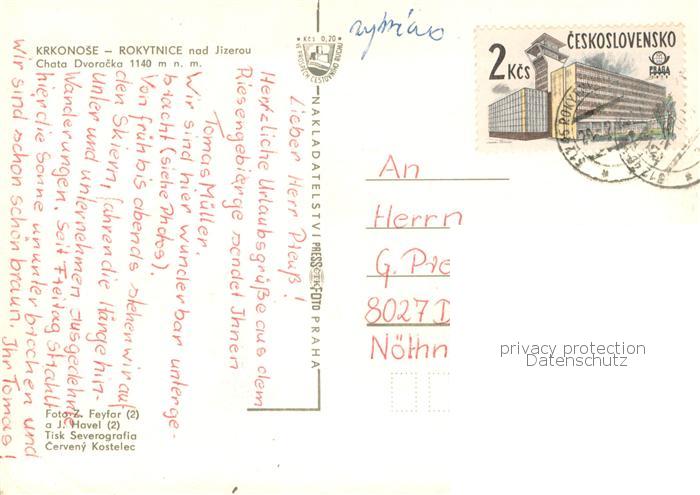 KRKONOŠE – ROKYTNICE nad Jizerou
Chata Dvoračka 1140 m n. m.
Kčs 0,20
VE PROSPĚCH CESTOVNÍHO RUCHU
NAKLADATELSTVÍ PRESSFOTO PRAHA
ČTK
Lieber Herr Preuß!
Herzliche Urlaubsgrüße aus dem
Riesengebierge sendet Ihnen
Tomas Müller.
Wir sind hier wunderbar unterge-
bracht (siehe Photos).
Von früh bis abends stehen wir auf
den Skiern, fahren die Hänge hin-
unter und unternehmen ausgedehnte
Wanderungen. Seit Freitag strahlt
hier die Sonne ununterbrochen und
wir sind schon schön braun. Ihr Tomas!
Foto Z. Feyfar (2)
a J. Havel (2)
Tisk Severografia
Červený Kostelec
ČESKOSLOVENSKO
2 Kčs
PRAGA
An
Herrn
G. Pre
8027 D
Nöthn
privacy protection
Datenschutz